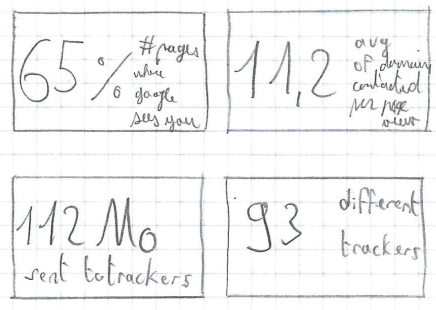 65 %
# pages
where
google
sees you
11,2
avg
of domain
contacted
per page
view
112 Mo
sent to trackers
93
different
trackers